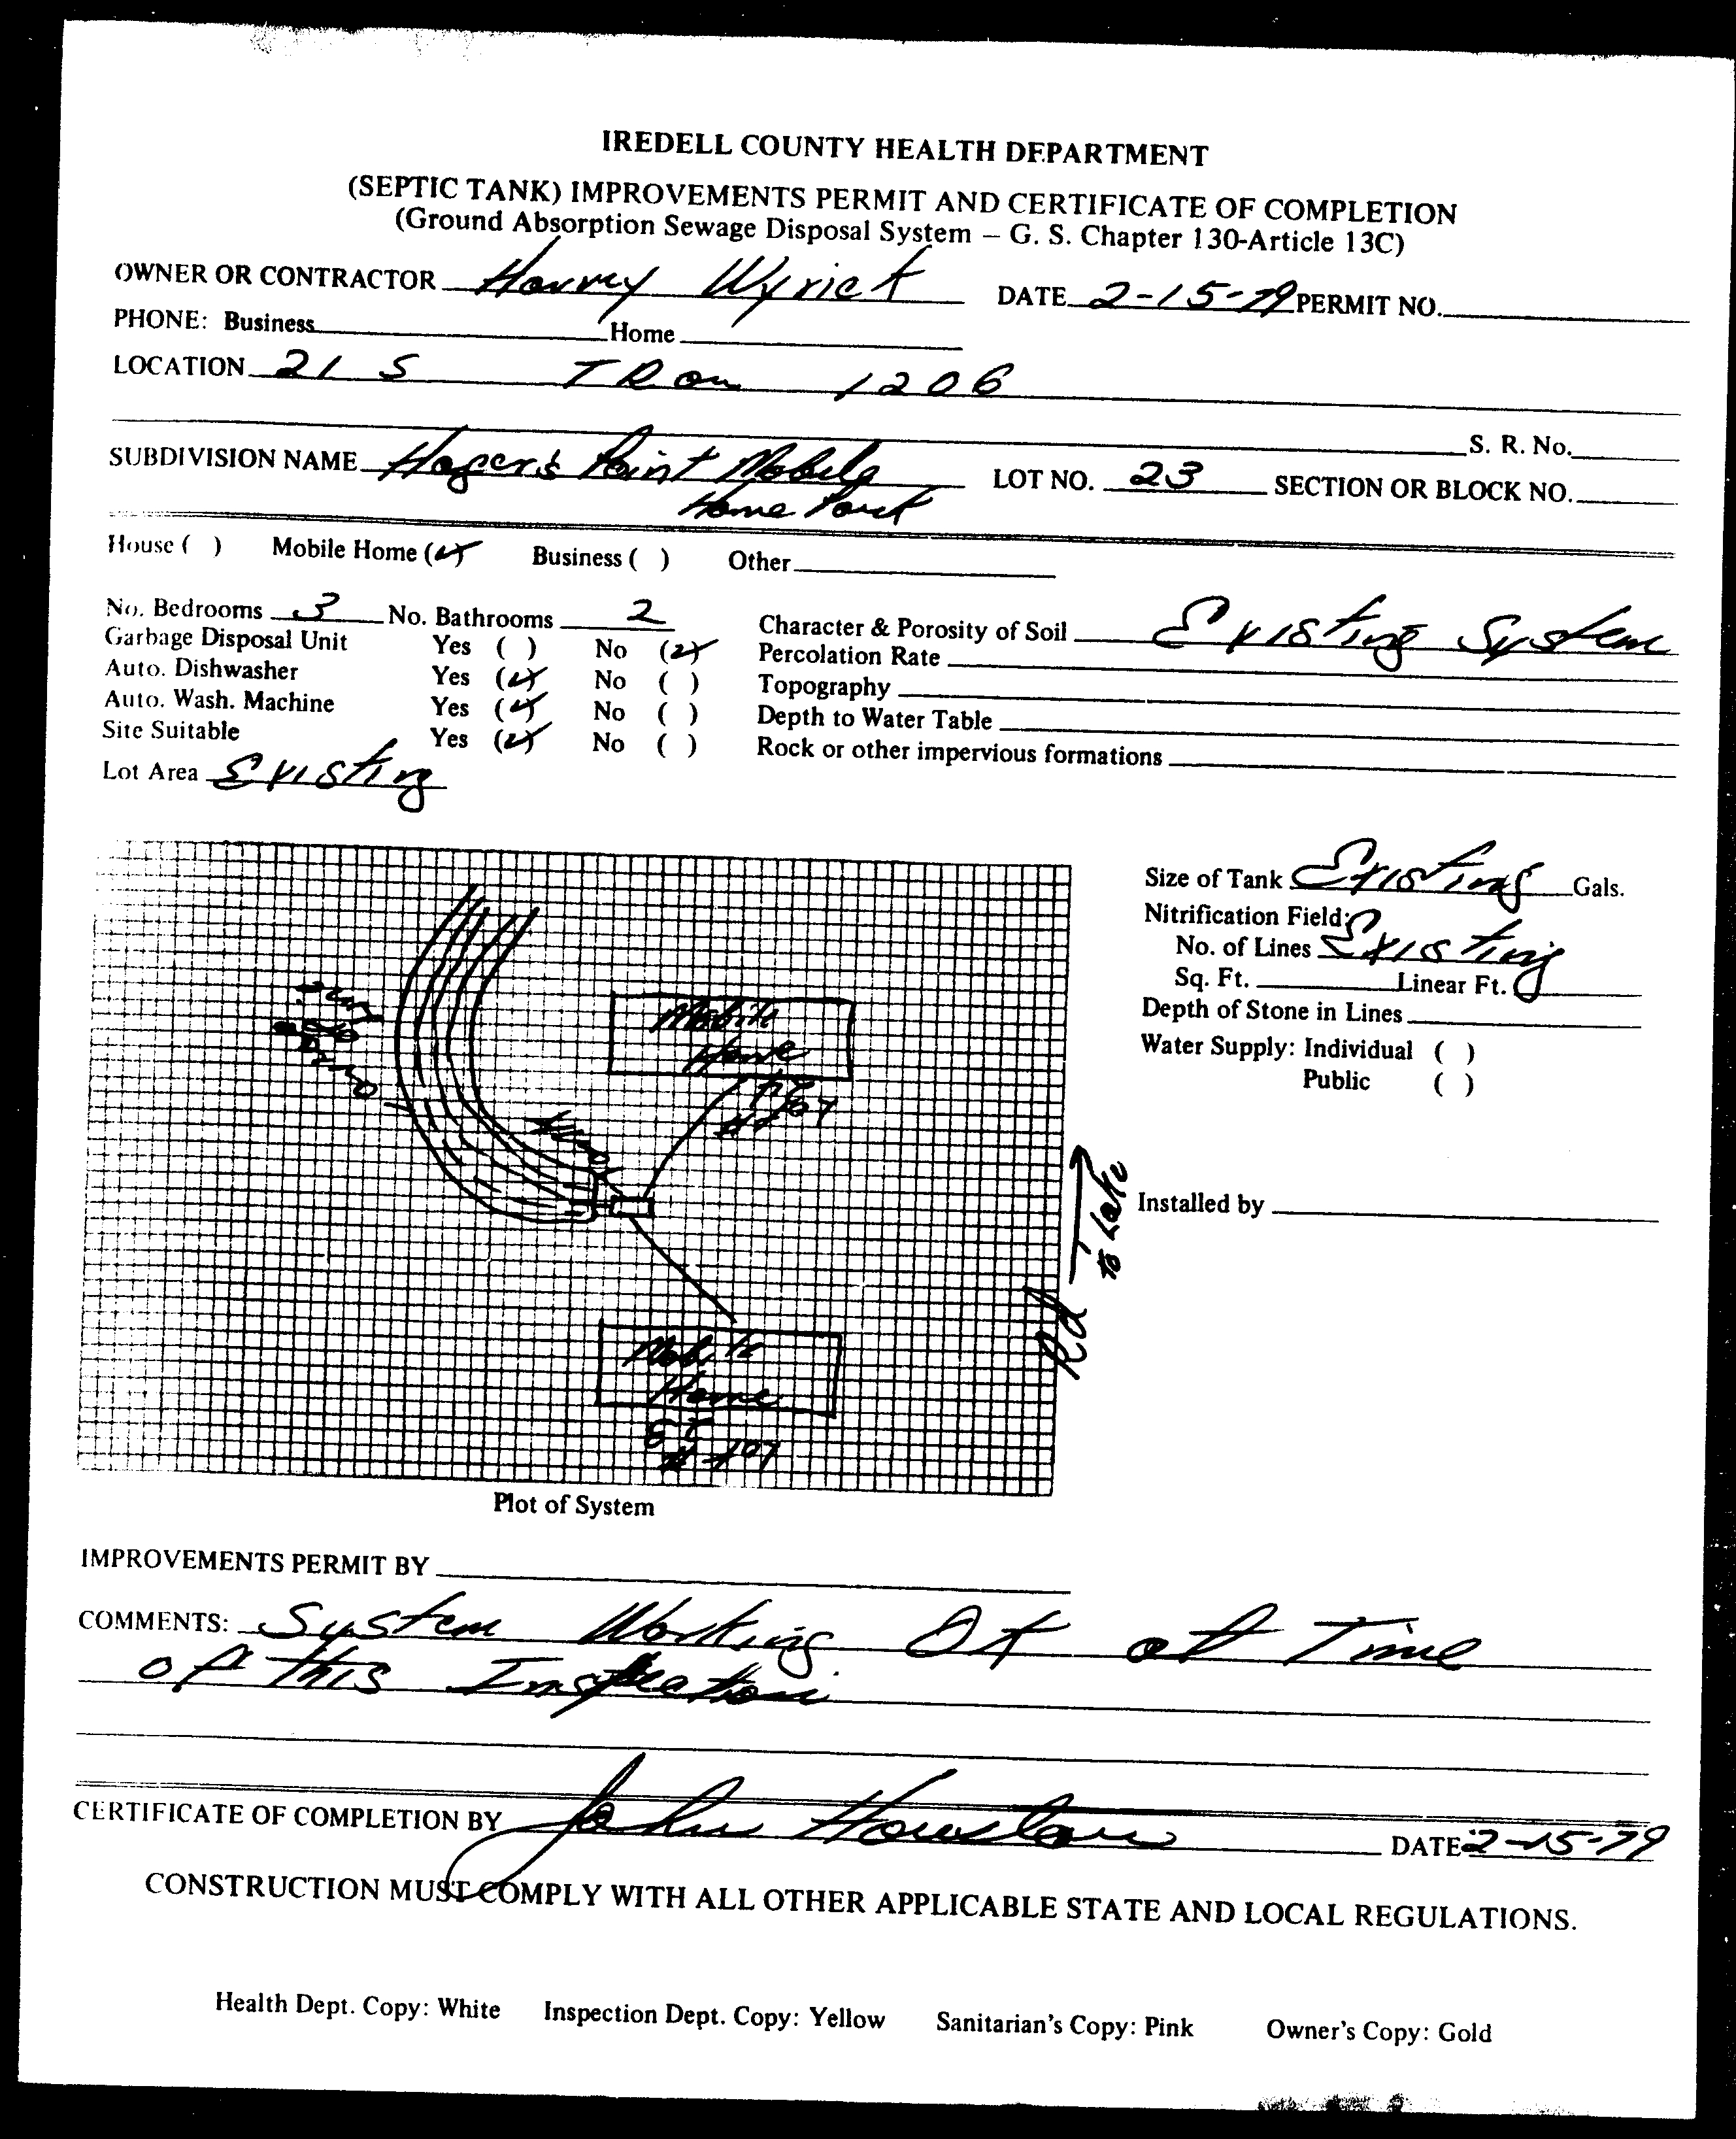 IREDELL COUNTY HEALTH DEPARTMENT
(SEPTIC TANK) IMPROVEMENTS PERMIT AND CERTIFICATE OF COMPLETION
(Ground Absorption Sewage Disposal System — G. S. Chapter 130-Article 13C)
OWNER OR CONTRACTOR Harvey Wyrick DATE 2-15-79 PERMIT NO.
PHONE: Business Home
LOCATION 21 S TR on 1206
S. R. No.
SUBDIVISION NAME Hager's Point Mobile LOT NO. 23 SECTION OR BLOCK NO.
Home Park
House ( ) Mobile Home (✓) Business ( ) Other
No. Bedrooms 3 No. Bathrooms 2 Character & Porosity of Soil Existing System
Garbage Disposal Unit Yes ( ) No (✓) Percolation Rate
Auto. Dishwasher Yes (✓) No ( ) Topography
Auto. Wash. Machine Yes (✓) No ( ) Depth to Water Table
Site Suitable Yes (✓) No ( ) Rock or other impervious formations
Lot Area Existing
Size of Tank Existing Gals.
Nitrification Field:
No. of Lines Existing
Sq. Ft. Linear Ft.
Depth of Stone in Lines
Water Supply: Individual ( )
Public ( )
Mobile
Home
Rd to Lake
Installed by
Mobile
Home
Plot of System
IMPROVEMENTS PERMIT BY
COMMENTS: System Working OK at Time
of this Inspection.
CERTIFICATE OF COMPLETION BY John Houston DATE 2-15-79
CONSTRUCTION MUST COMPLY WITH ALL OTHER APPLICABLE STATE AND LOCAL REGULATIONS.
Health Dept. Copy: White Inspection Dept. Copy: Yellow Sanitarian's Copy: Pink Owner's Copy: Gold